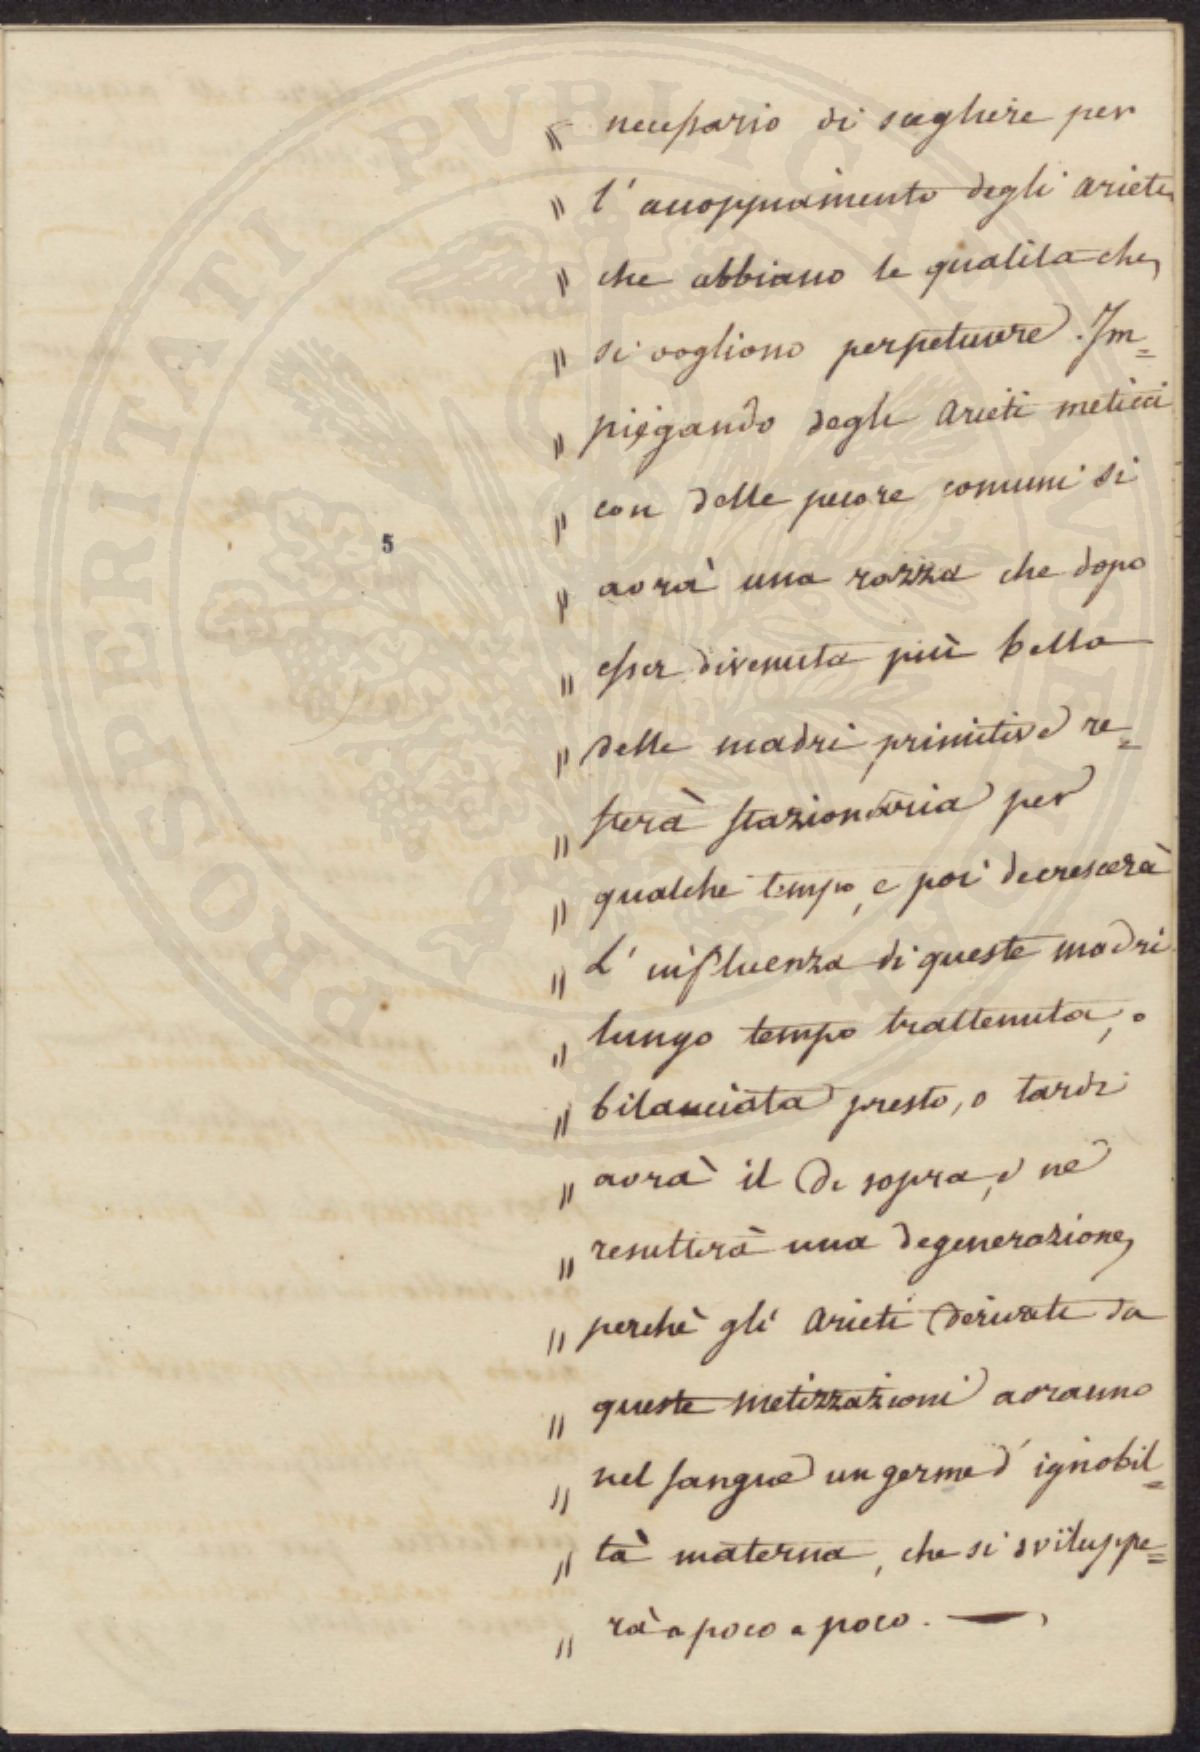 " necessario di sagliere per
" l'accoppiamento degli arieti
" che abbiano le qualità che
" si vogliono perpetuare. Im=
" piegando degli arieti meticci
" con delle pecore comuni si
5
" avrà una razza che dopo
" esser divenuta più bella
" delle madri primitive re=
" sterà stazionaria per
" qualche tempo, e poi decrescerà
" L'influenza di queste madri
" lungo tempo trattenuta, o
" bilanciata presto, o tardi
" avrà il di sopra, e ne
" resulterà una degenerazione,
" perchè gli arieti derivati da
" queste metizzazioni avranno
" nel sangue un germe d'ignobil=
" tà materna, che si sviluppe=
" rà a poco a poco. —
PROSPERITATI PVBLICAE AVGENDAE